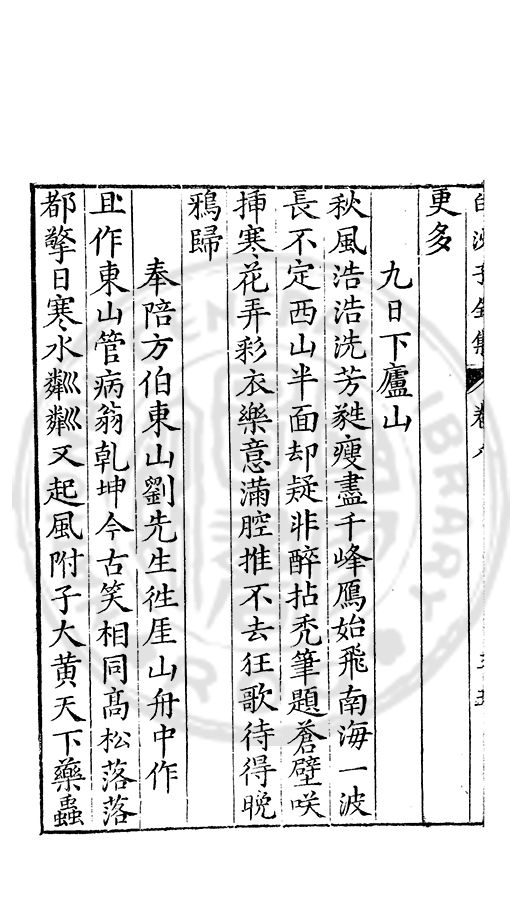 白沙子全集 卷八
更多
九日下廬山
秋風浩浩洗芳蕤瘦盡千峰鴈始飛南海一波
長不定西山半面却疑非醉拈禿筆題蒼壁咲
挿寒花弄彩衣樂意滿腔推不去狂歌待得晚
鴉歸
奉陪方伯東山劉先生徃厓山舟中作
且作東山管病翁乾坤今古笑相同髙松落落
都擎日寒水粼粼又起風附子大黄天下藥蟲